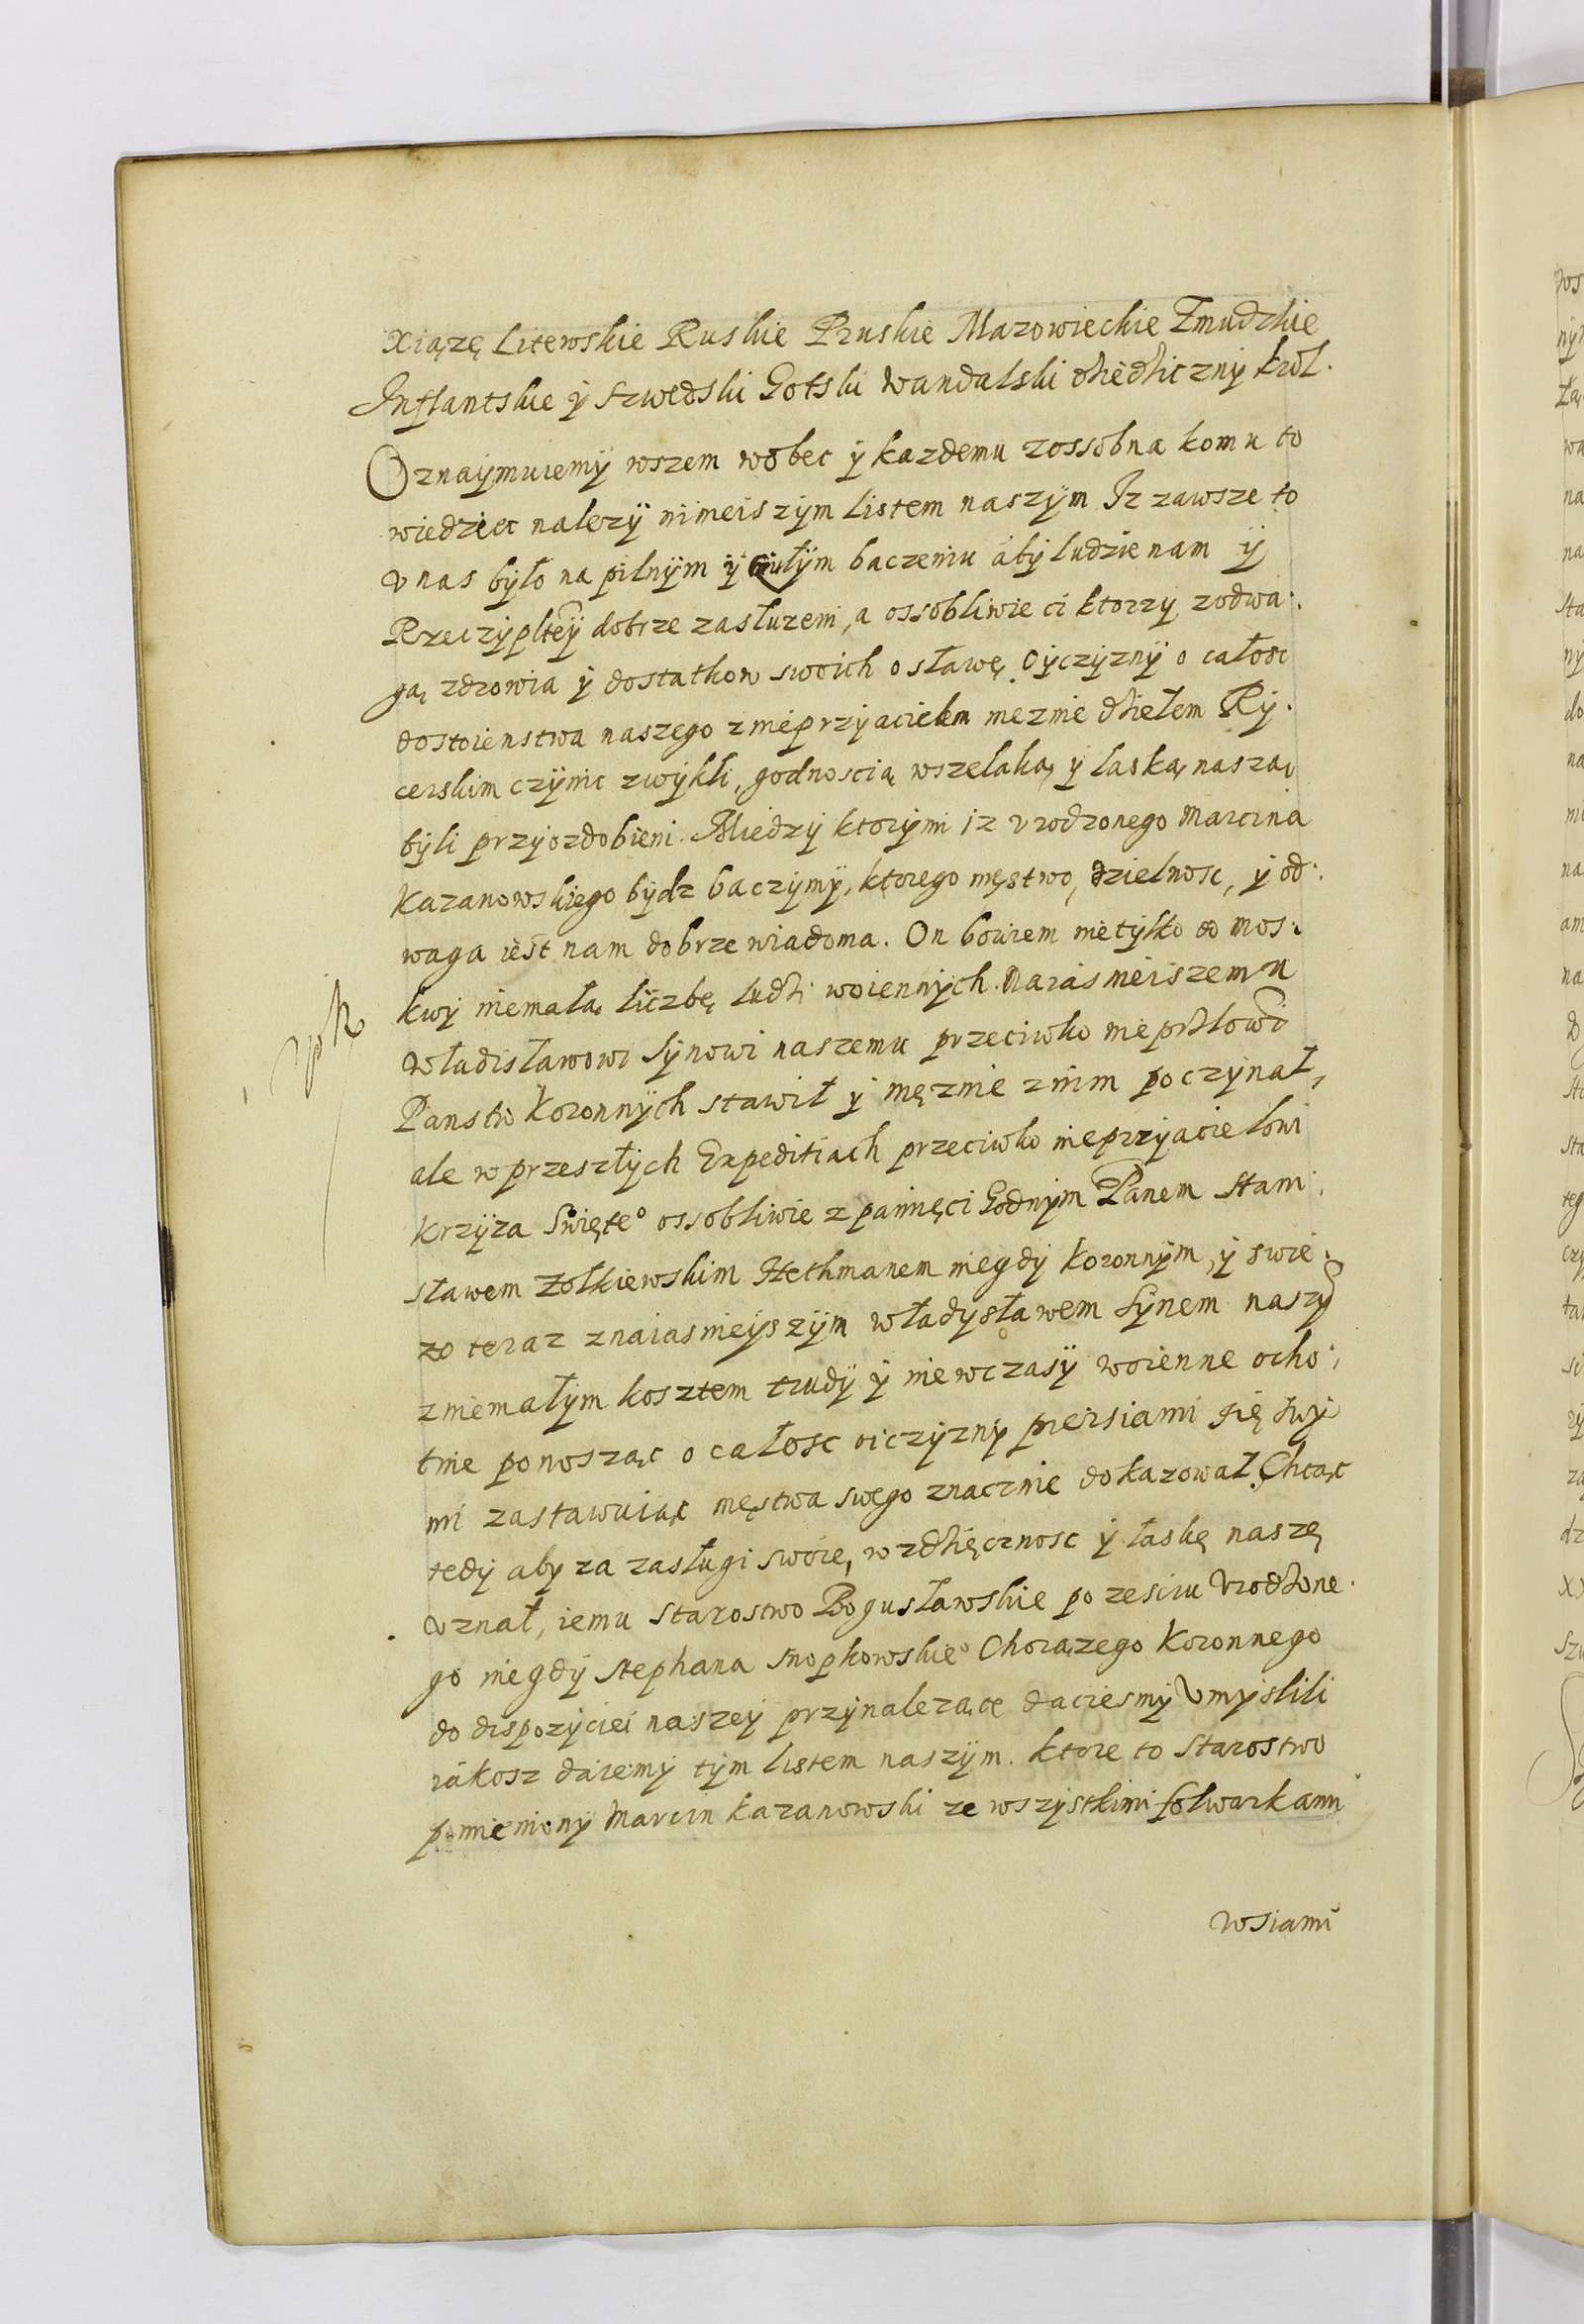 Xiążę Litewskie Ruskie Pruskie Mazowieckie Zmudzkie
Inflantskie ÿ Szwedski Gotski Wandalski dziedziczny krol.
Oznaÿmuiemÿ wszem wobec ÿ kazdemu zossobna komu to
wiedziec nalezÿ ninieiszÿm listem naszÿm Iz zawsze to
v nas bÿło na pilnÿm ÿ baczeniu abÿ ludzie nam ÿ
Rzeczÿpltеÿ dobrze zasłuzeni, a ossobliwie ci ktorzy zodwa:
gą zdrowia ÿ dostatkow swoich o sławę oÿczÿznÿ o całosc
dostoienstwa naszego znieprzÿacielem meznie dziełem Rÿ.
cerskim czÿnic zwÿkli, godnoscią wszelaką ÿ laską naszą
bÿli przÿozdobieni. Miedzÿ ktorÿmi iz vrodzonego Marcina
Kazanowskiego bÿdz baczÿmÿ, ktorego męstwo, dzielnosc, ÿ od:
waga iest nam dobrze wiadoma. On bowiem nietÿlko do Mos:
kwÿ niemałą liczbę ludzi woiennÿch. Naiasnieiszemu
Władisławowi Sÿnowi naszemu przeciwko
Panstw Koronnÿch stawił ÿ mężnie znim poczÿnał,
ale w przeszłÿch Expeditiach przeciwko nieprzÿacielowi
Krzÿza Swięte° ossobliwie z pamięci Godnÿm Panem Stani:
sławem Zołkiewskim Hethmanem niegdÿ Koronnÿm, ÿ swie:
zo teraz znaiasnieÿszÿm Władÿsławem Sÿnem naszÿ
zniemałÿm kosztem trudÿ ÿ niewczasÿ woienne ocho:
tnie ponosząc o całosc oiczÿznÿ piersiami się swÿ
mi zastawuiąc męstwa swego znacznie dokazował. Chcąc
tedÿ aby za zasługi swoie, wzdzięcznosc ÿ łaskę naszę
vznał, iemu Starostwo Bogusławskie po zesciu Vrodzone.
go niegdÿ Stephana Snopkowskie° Chorążego Koronnego
do dispozÿciei naszeÿ przÿnalezące daciesmÿ Vmÿslili
iakosz daiemÿ tÿm listem naszÿm. ktore to Starostwo
pomienionÿ Marcin Kazanowski ze wszÿstkimi folwarkami
wsiami